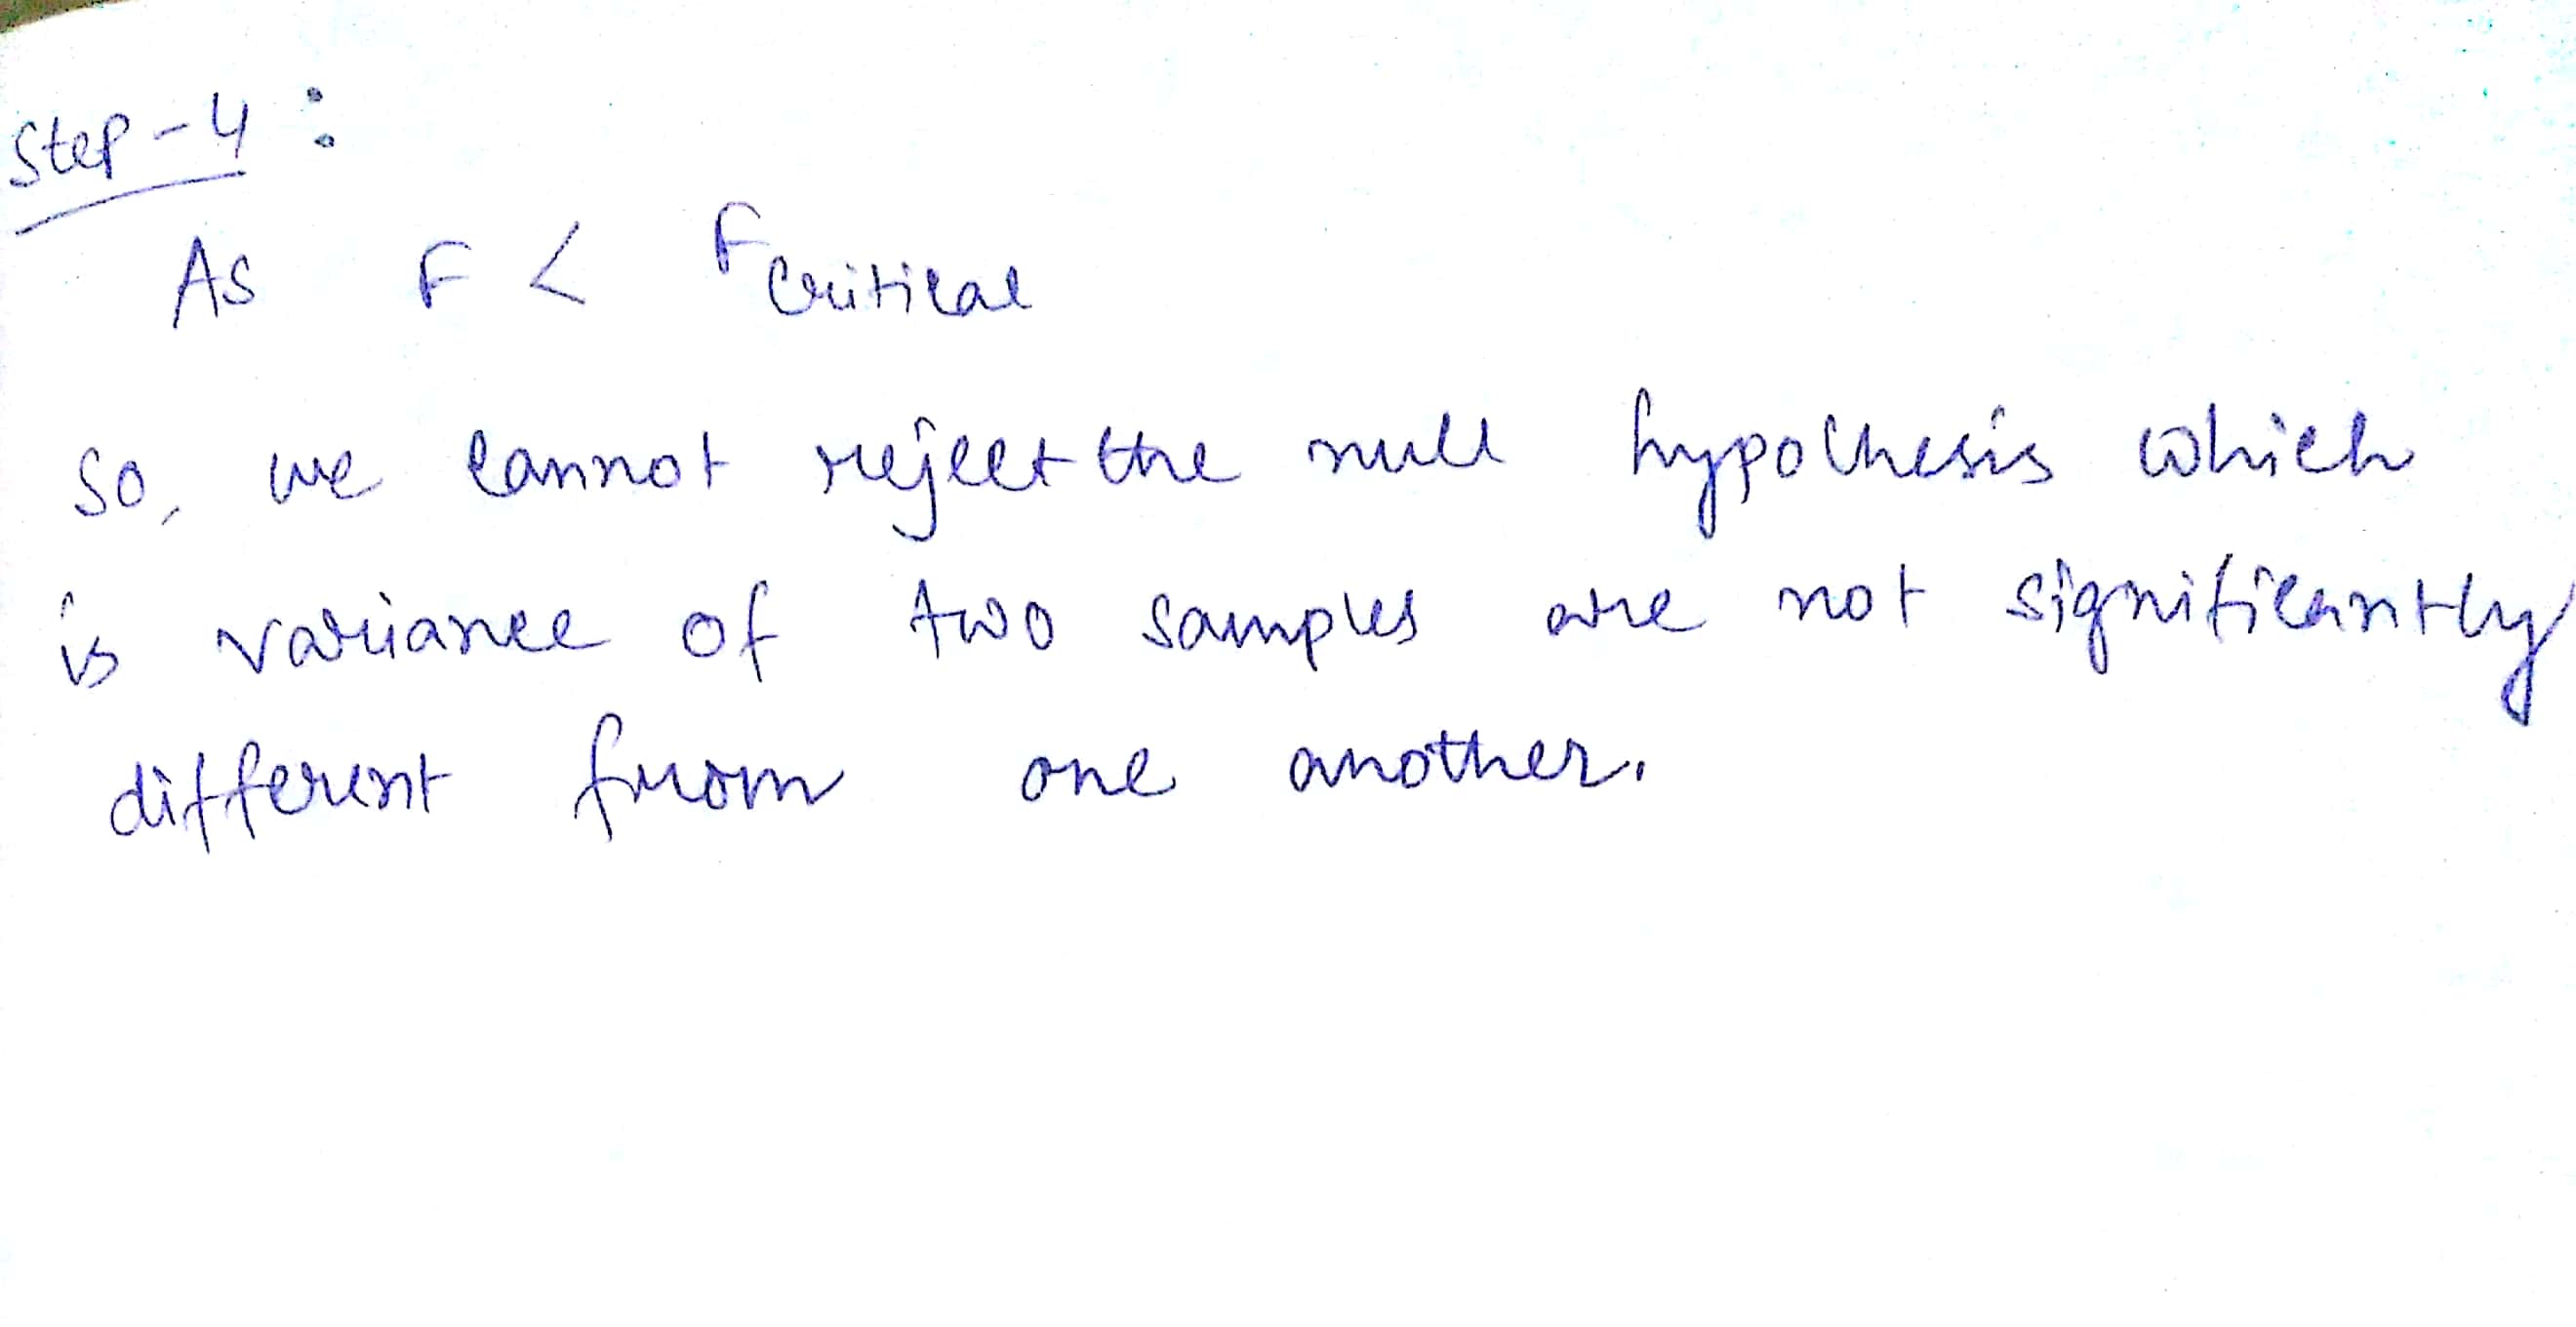 Step-4:
As F < Fcritical
So, we cannot reject the null hypothesis which
is variance of two samples are not significantly
different from one another.